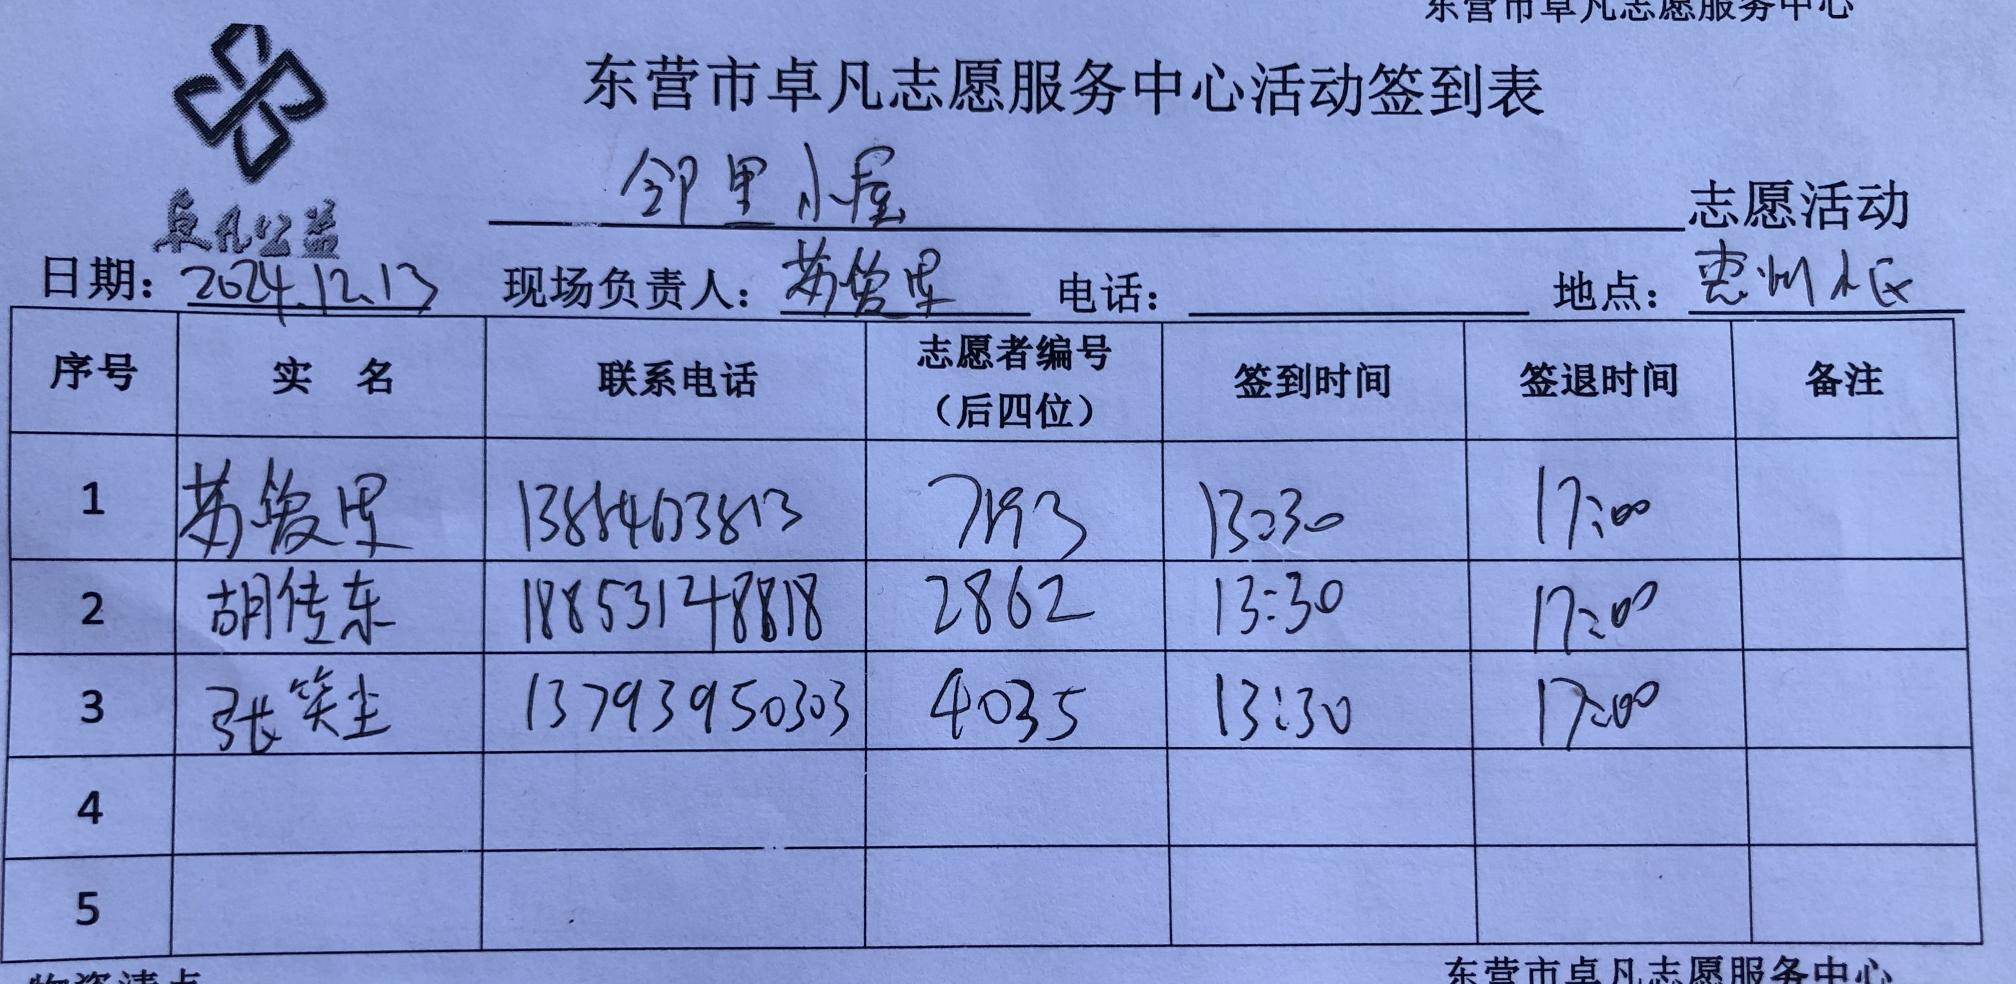 东营市卓凡志愿服务中心
东营市卓凡志愿服务中心活动签到表
卓凡公益
邻里小屋 志愿活动
日期：2024.12.13 现场负责人： 电话： 地点：惠州小区
序号 实 名 联系电话 志愿者编号（后四位） 签到时间 签退时间 备注
1 7193 13:30 17:00
2 胡传东 18853148818 2862 13:30 17:00
3 张笑尘 13793950303 4035 13:30 17:00
4
5
物资清点
东营市卓凡志愿服务中心